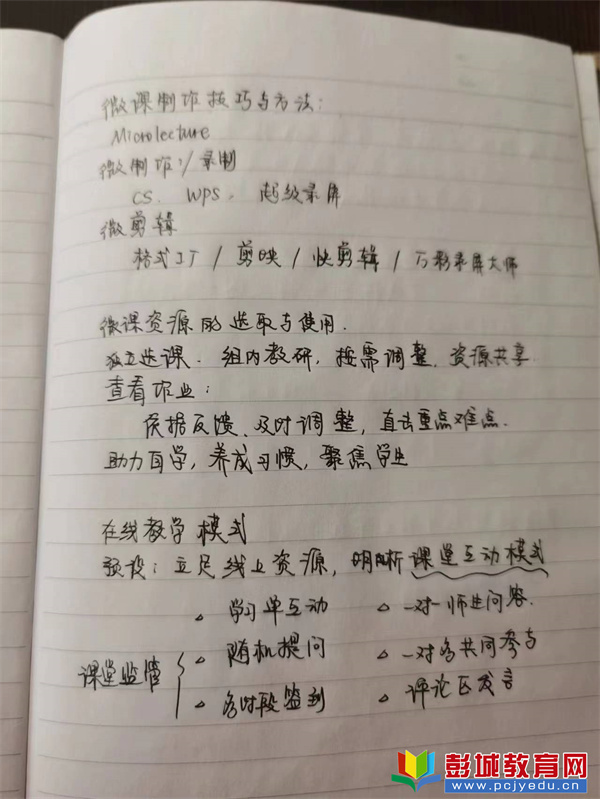 微课制作技巧与方法：
Microlecture
微制作：/ 录制
CS. WPS. 超级录屏
微剪辑
格式工厂 / 剪映 / 快剪辑 / 万彩录屏大师
微课资源的选取与使用.
独立选课. 组内教研, 按需调整, 资源共享
查看作业：
依据反馈、及时调整, 直击重点难点.
助力自学, 养成习惯, 聚焦学生
在线教学模式
预设：立足线上资源, 明晰课堂互动模式
。学习单互动 。一对一师生问答.
课堂监管 。随机提问 。一对多共同参与
。多时段签到 。评论区发言
彭城教育网
www.pcjyedu.cn